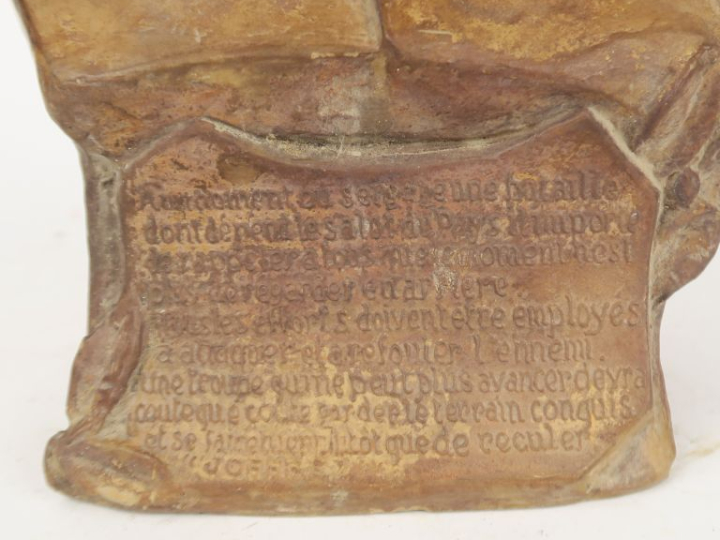 Au moment où s'engage une bataille
dont dépend le salut du Pays il importe
de rappeler à tous que le moment n'est
plus de regarder en arrière.
Tous les efforts doivent etre employés
à attaquer et à refouler l'ennemi.
une troupe qui ne peut plus avancer devra
coute que coute garder le terrain conquis
et se faire tuer plutôt que de reculer
"JOFFRE"